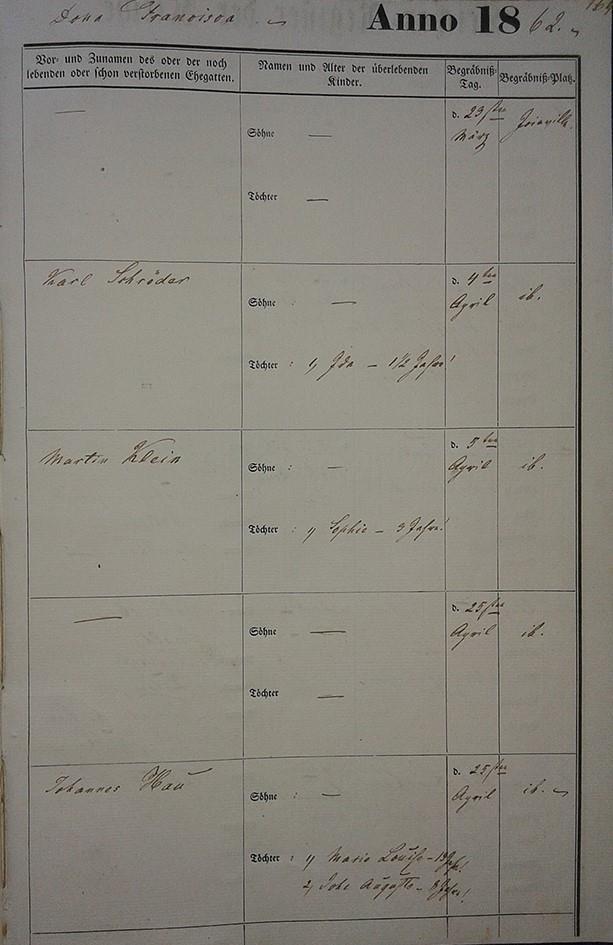 Dona Francisca. Anno 1862.
Vor- und Zunamen des oder der noch lebenden oder schon verstorbenen Ehegatten.
Namen und Alter der überlebenden Kinder.
Begräbniß-Tag.
Begräbniß-Platz.
—
Söhne —
Töchter —
d. 23sten März
Joinville.
Karl Schröder
Söhne : —
Töchter : 1, Ida — 1 1/2 Jahre!
d. 4ten April
ib.
Martin Klein
Söhne : —
Töchter : 1, Sophie — 3 Jahre!
d. 5ten April
ib.
—
Söhne —
Töchter —
d. 25sten April
ib.
Johannes Hau
Söhne : —
Töchter : 1, Marie Louise —
2, Auguste —
d. 25sten April
ib.